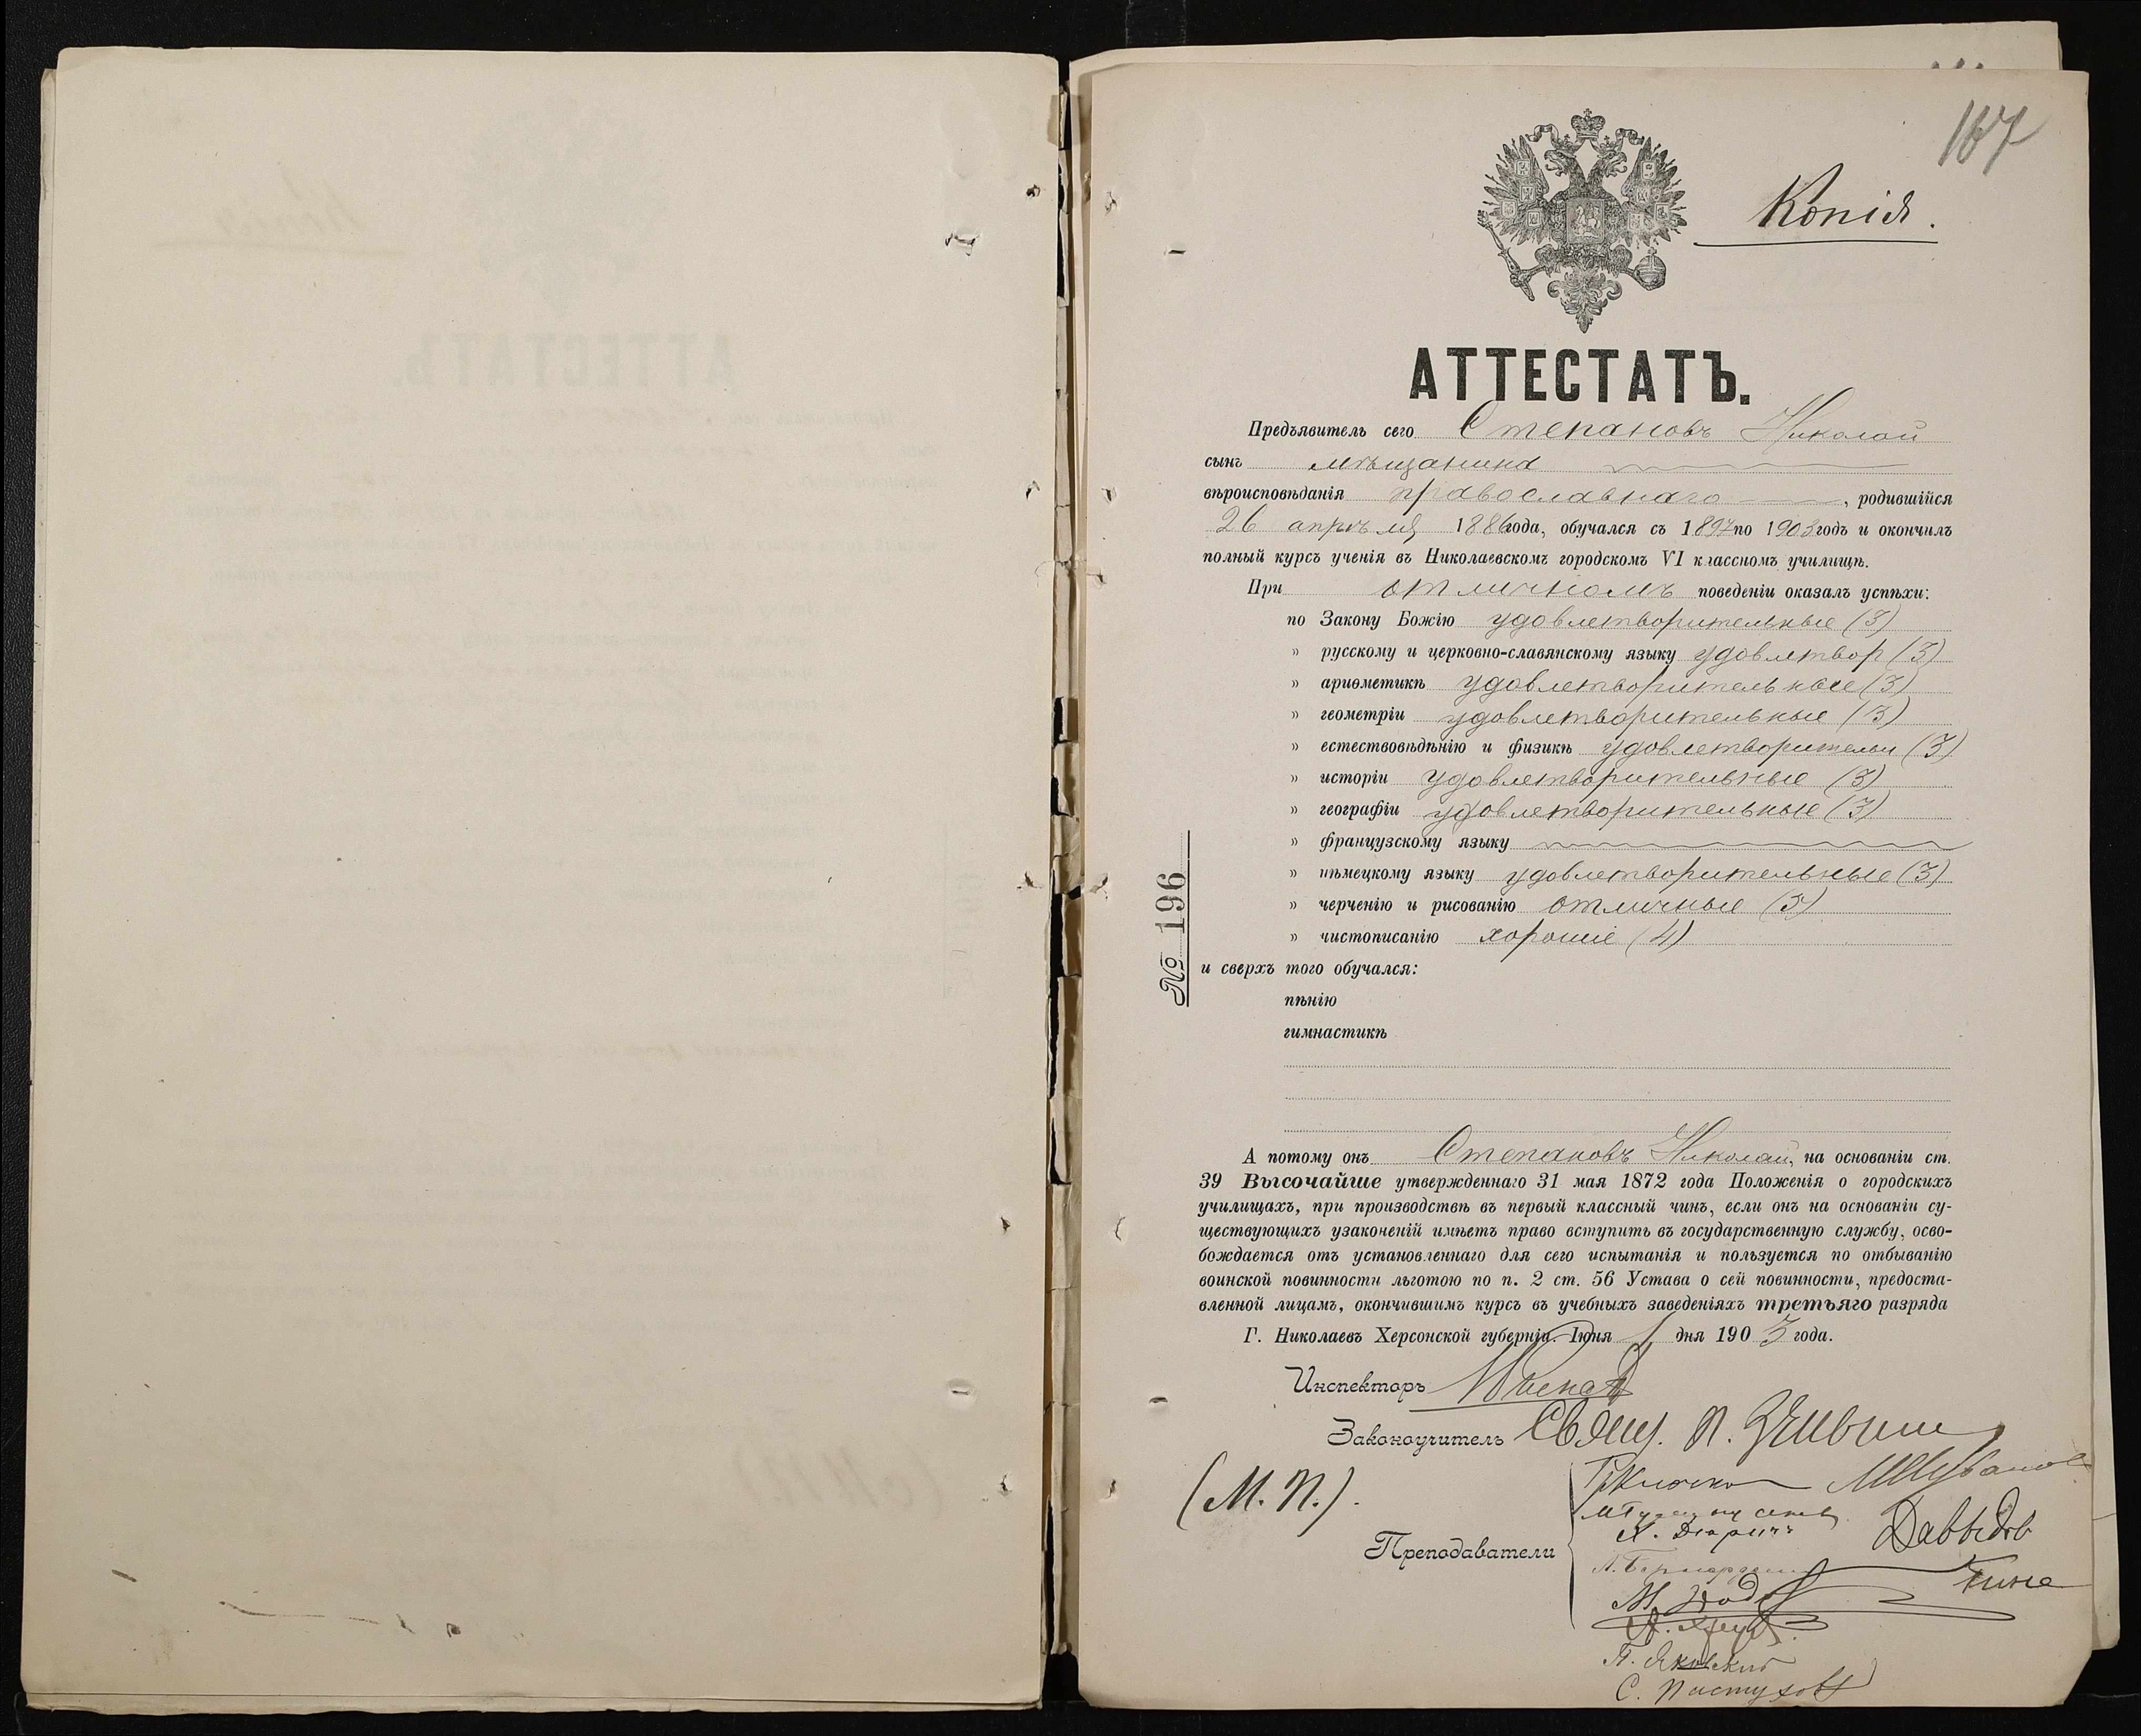 167
Копія.
АТТЕСТАТЪ.
Предъявитель сего Степановъ Николай
сынъ мѣщанина
вѣроисповѣданія православнаго, родившійся
26 апрѣля 1886 года, обучался съ 1897 по 1903 годъ и окончилъ
полный курсъ ученія въ Николаевскомъ городскомъ VI классномъ училищѣ.
При отличномъ поведеніи оказалъ успѣхи:
по Закону Божію удовлетворительные (3)
" русскому и церковно-славянскому языку удовлетвор (3)
" ариѳметикѣ удовлетворительные (3)
" геометріи удовлетворительные (3)
" естествовѣдѣнію и физикѣ удовлетворительн (3)
" исторіи удовлетворительные (3)
" географіи удовлетворительные (3)
" французскому языку
" нѣмецкому языку удовлетворительные (3)
" черченію и рисованію отличные (5)
" чистописанію хорошіе (4)
№ 196
и сверхъ того обучался:
пѣнію
гимнастикѣ
А потому онъ Степановъ Николай, на основаніи ст.
39 Высочайше утвержденнаго 31 мая 1872 года Положенія о городскихъ
училищахъ, при производствѣ въ первый классный чинъ, если онъ на основаніи су-
ществующихъ узаконеній имѣетъ право вступить въ государственную службу, осво-
бождается отъ установленнаго для сего испытанія и пользуется по отбыванію
воинской повинности льготою по п. 2 ст. 56 Устава о сей повинности, предоста-
вленной лицамъ, окончившимъ курсъ въ учебныхъ заведеніяхъ третьяго разряда
Г. Николаевъ Херсонской губерніи. Іюня 1 дня 1903 года.
Инспекторъ
Законоучитель Свящ. П.
(М. П.).
Преподаватели
Давыдов
С. Пастухов